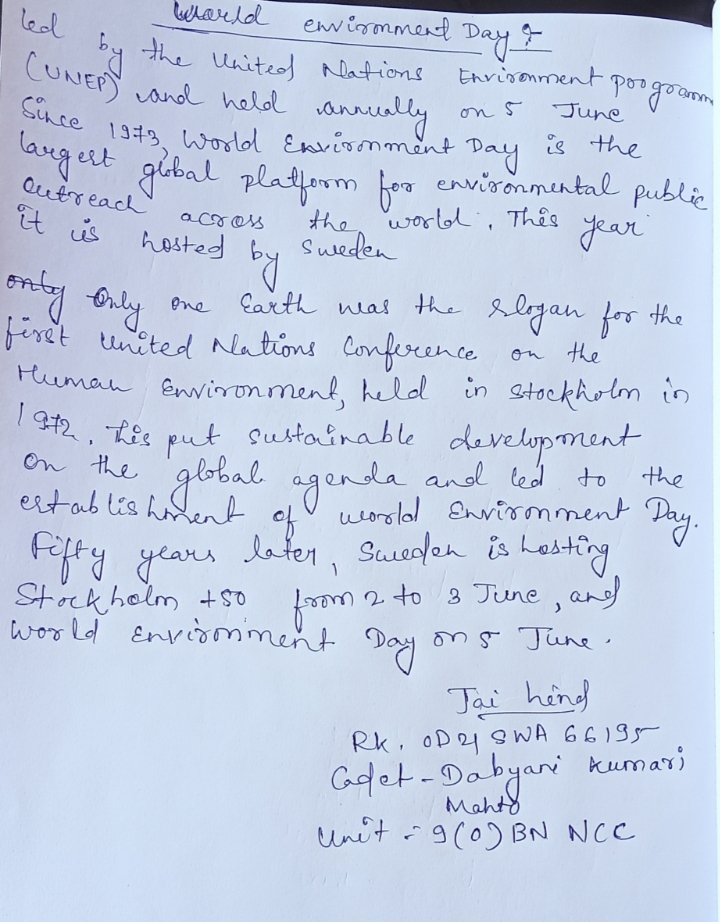 World environment Day :-
led by the United Nations Environment programm
(UNEP) and held annually on 5 June
Since 1973, World Environment Day is the
largest global platform for environmental public
outreach across the world. This year
it is hosted by Sweden
only Only one Earth was the slogan for the
first United Nations Conference on the
Human Environment, held in Stockholm in
1972. This put sustainable development
on the global agenda and led to the
establishment of world Environment Day.
Fifty years later, Sweden is hosting
Stockholm +50 from 2 to 3 June, and
World Environment Day on 5 June.
Jai hind
Rk. OD21 SWA 66195
Cadet - Dabyani Kumari
Mahto
Unit - 9(O) BN NCC